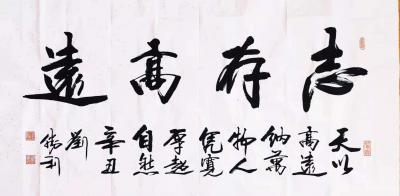 志存高遠
天以
高遠
納萬
物人
凭寬
厚越
自然
辛丑
劉